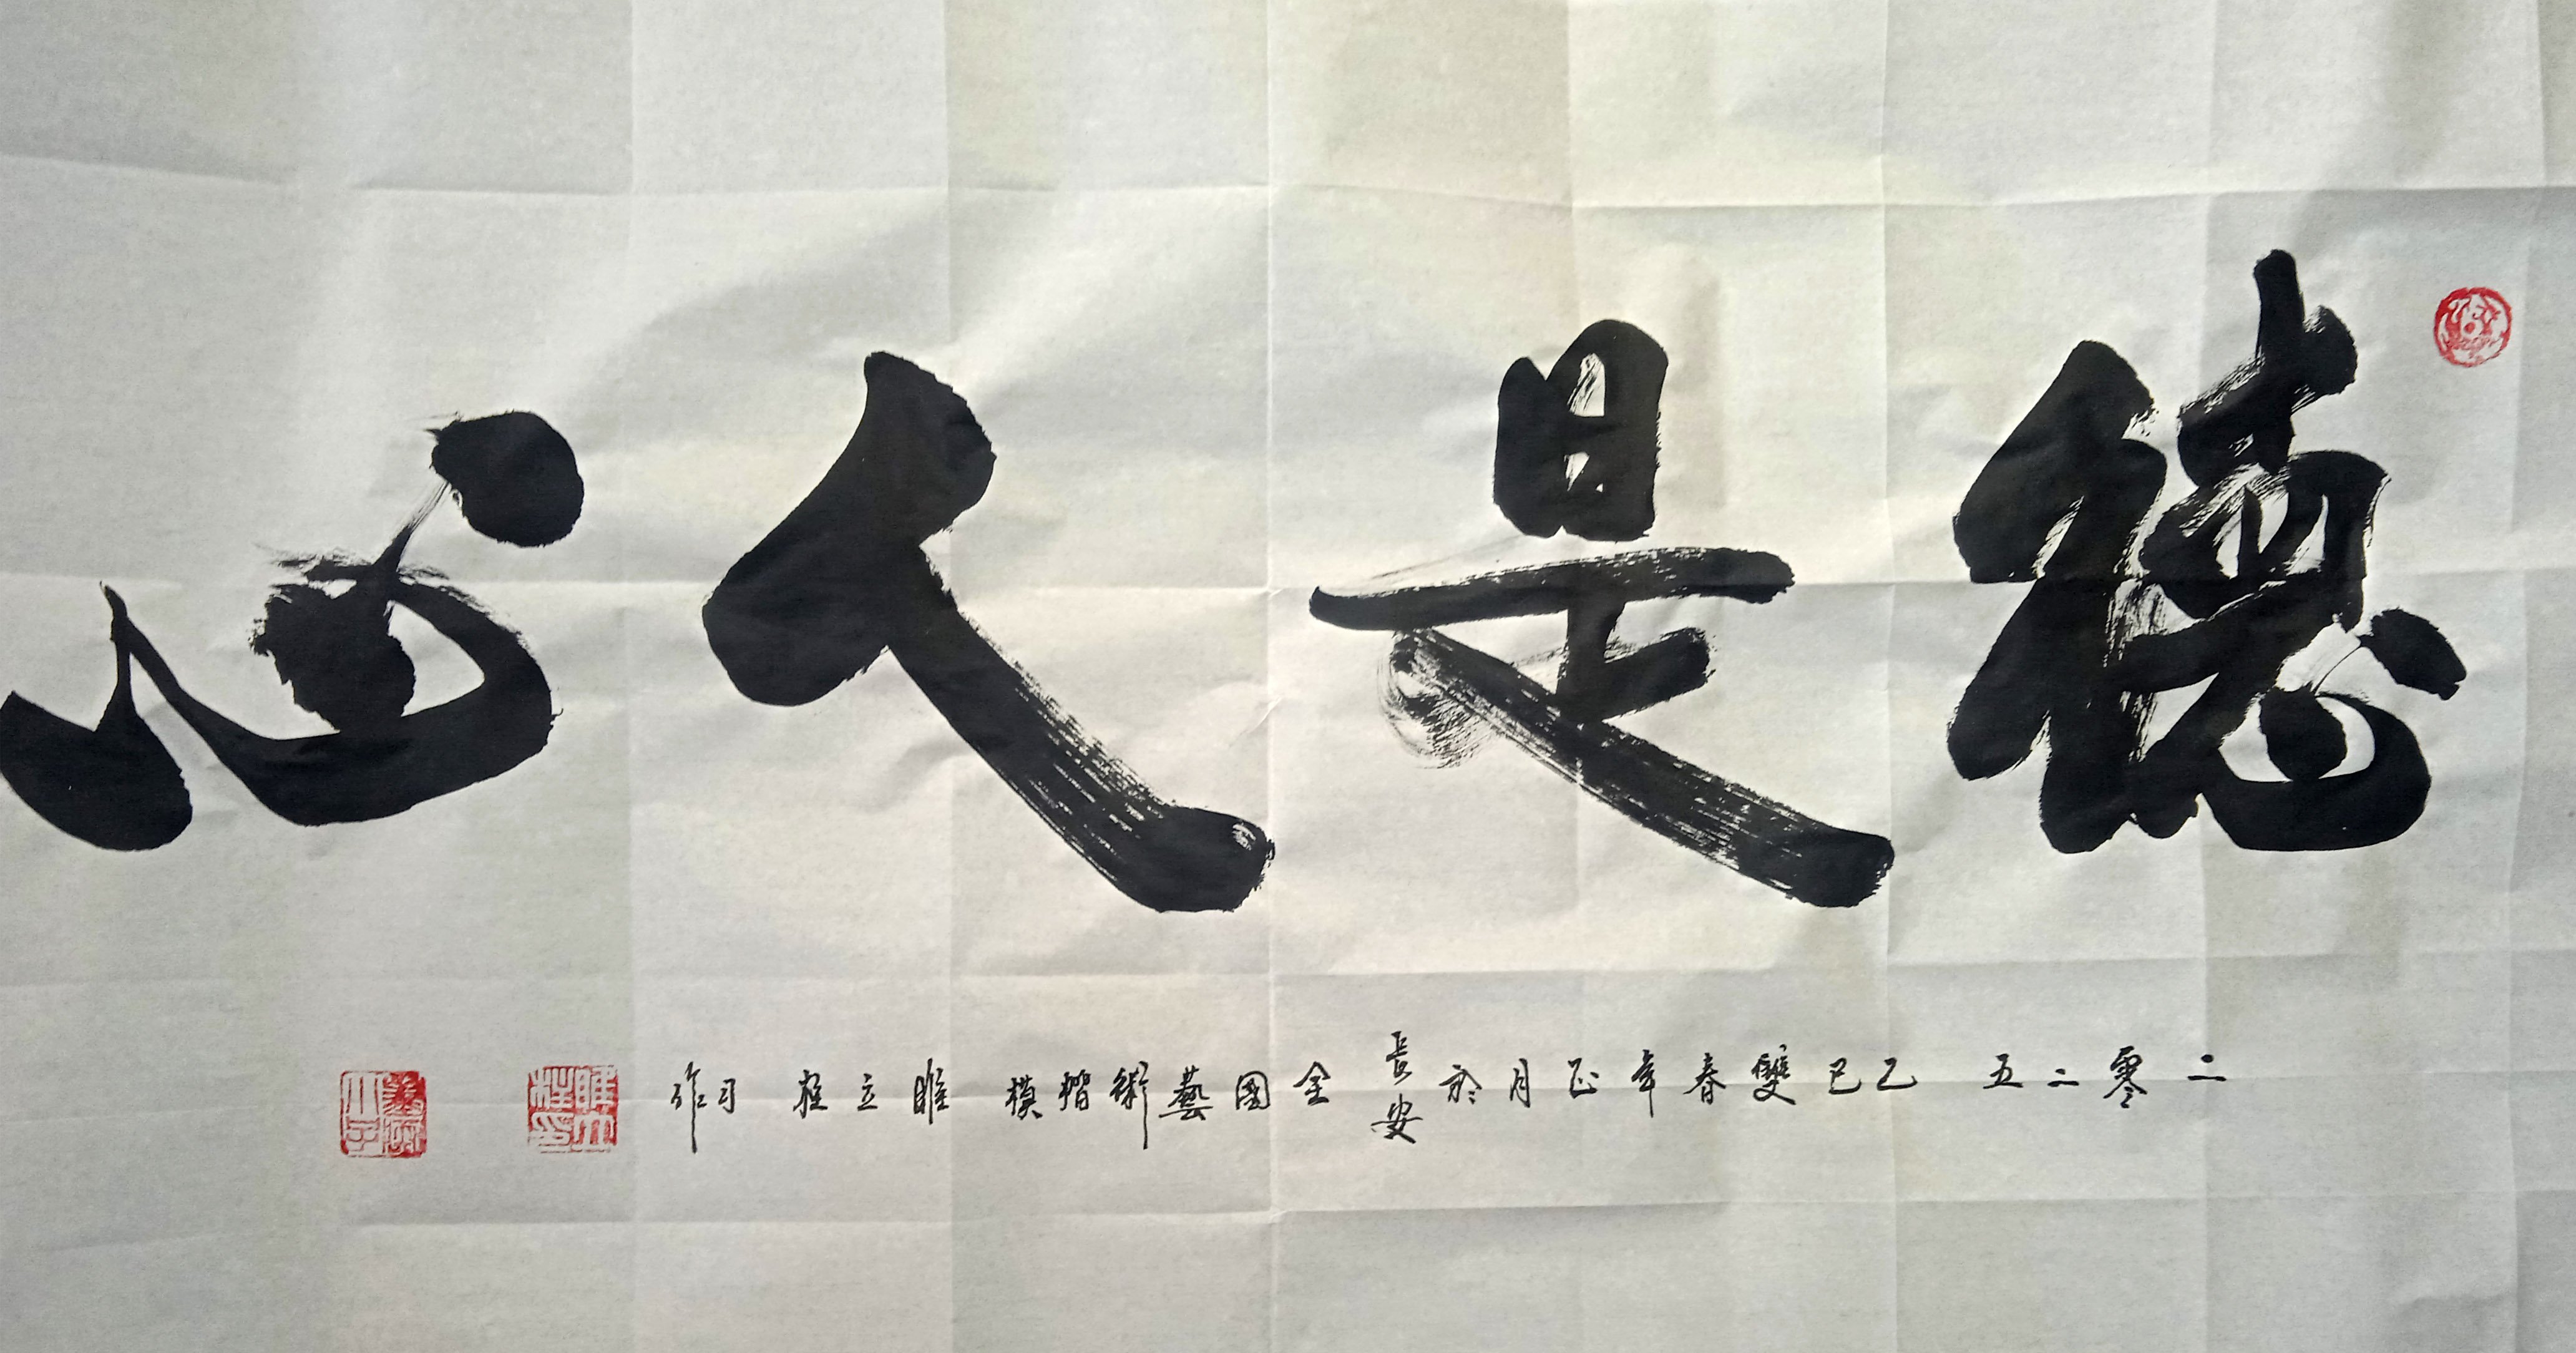 德是人心
二零二五 乙巳雙春年正月於長安 全國藝術楷模 睢立程 習作